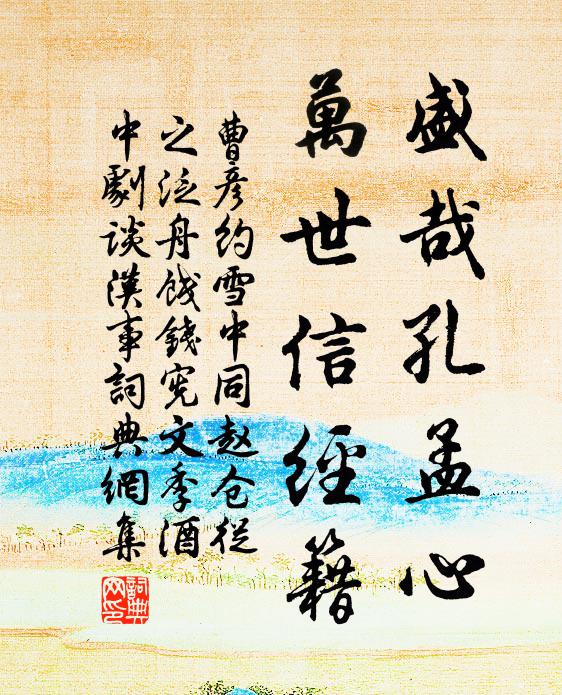 盛哉孔孟心
萬世信經籍
曹彦約雪中同赵仓從
之泛舟餞錢宪文季酒
中劇谈漢事詞典網集
詞典
网印